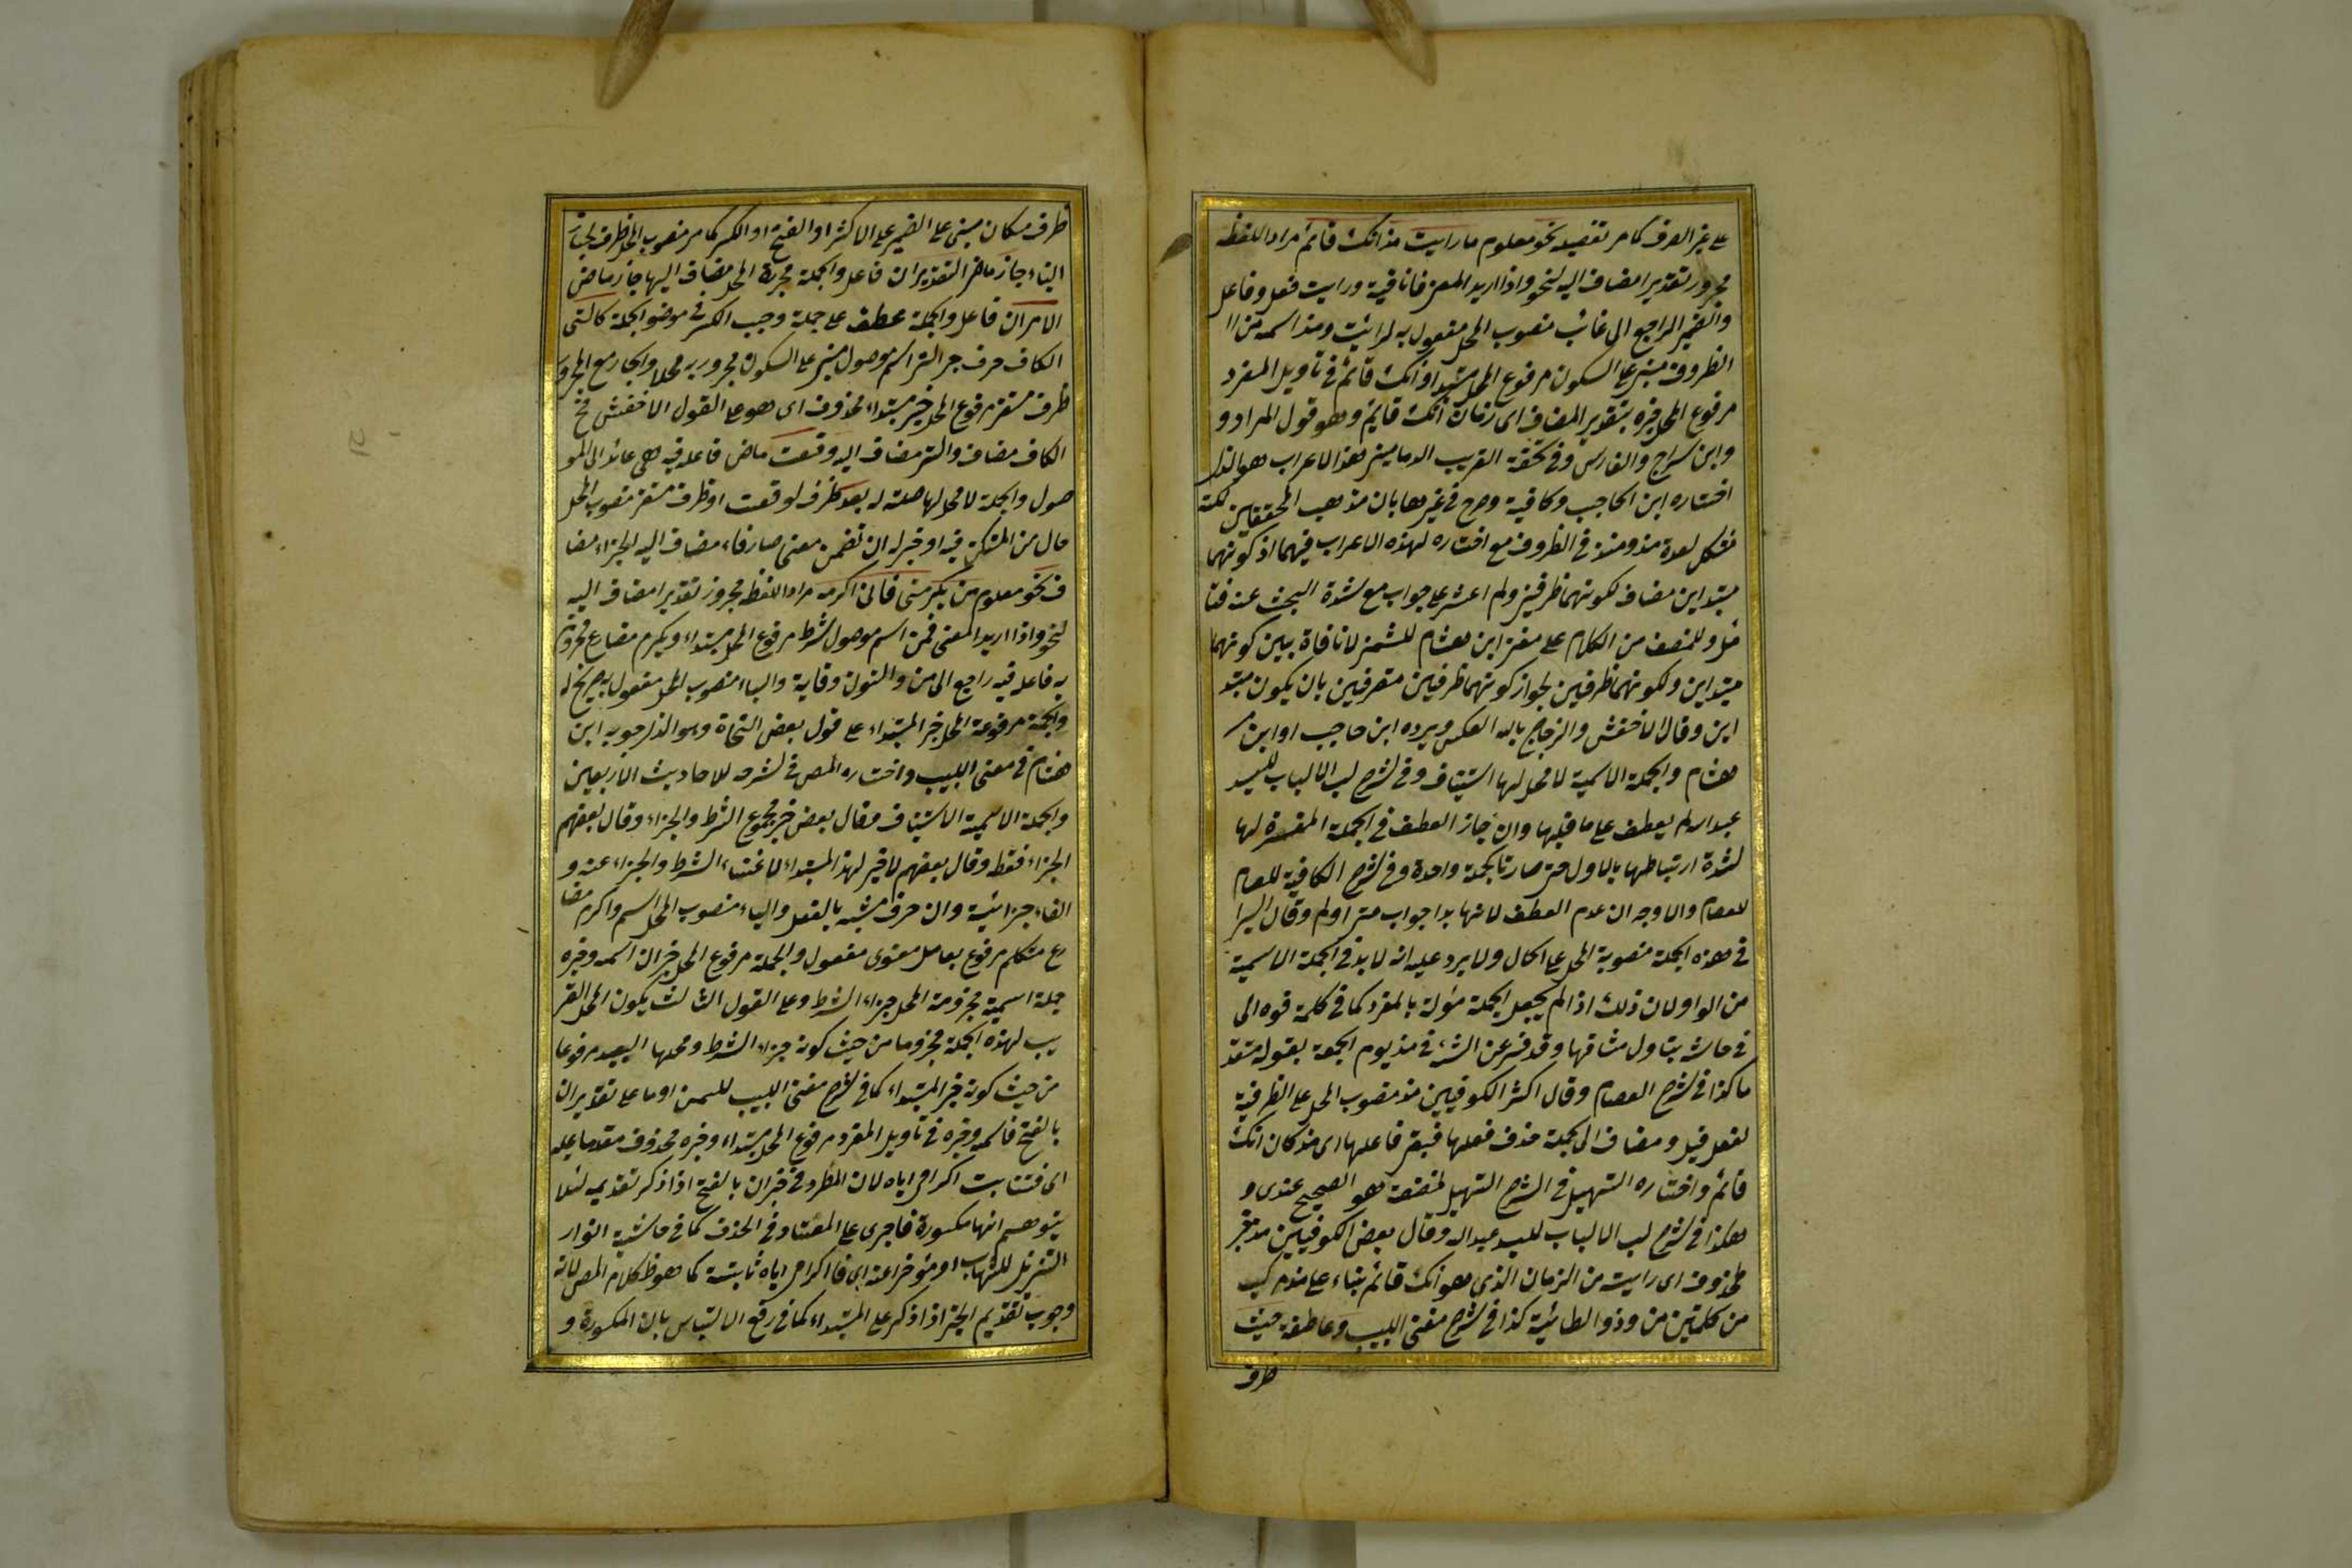 على غير الصرف كما مر تفصيله نحو معلوم ما رايت مذ انك قائم مراد اللفظ
مجرور تقديرا مضاف اليه لنحو واذا اريد المعنى فما نافية ورايت فعل وفاعل
والضمير الراجع الى غائب منصوب المحل مفعول به لرائيت ومذ اسمه من
الظروف مبنى على السكون مرفوع المحل مبتدا وانك قائم فى تاويل المفرد
مرفوع المحل خبره بتقدير المضاف اى زمان انك قائم وهو قول المراد و
وابن سراج والفارسى وفى تحفة الغريب الدمامينى هذا الاعراب هو الذى
اختاره ابن الحاجب وكافية وصرح فى غيرها بان مذهب المحققين لكنه
مشكل لعده مذ ومنذ فى الظروف مع اختاره لهذه الاعراب فيهما اذ كونهما
مبتداين مضاف لكونهما ظرفين ولم اعثر على جواب مع شدة البحث عنه فتا
مل وللمنصف من الكلام على مغنى ابن هشام للشمنى لا منافاة بين كونهما
مبتداين ولكونهما ظرفين لجواز كونهما ظرفين متصرفين بان يكون مبتد
اين وقال الاخفش والزجاج بالعكس ويرده ابن حاجب او ابن
هشام والجملة الاسمية لا محل لها استيناف وفى شرح لب الالباب للسيد
عبد الله لم يعطف على ما قبلها وان جاز العطف فى الجملة المفسرة لها
لشدة ارتباطها بالاول حتى صارتا كجملة واحدة وفى شرح الكافية للعصام
للعصام والاوجه ان عدم العطف لانها بدا جواب متى اولم وقال السيرا
فى هذه الجملة منصوبة المحل على الحال ولا يرد عليه انه لا بد فى الجملة الاسمية
من الواو لان ذلك اذا لم يجعل الجملة مؤلة بالمفرد كما فى كلمة فوه الى
فى حاشه بتاول مشافها وقد فسر عن الشئ فى مذ يوم الجمعة بقوله متقد
ما كذا فى شرح العصام وقال اكثر الكوفيين مذ منصوب المحل على الظرفية
لفعل قبل ومضاف الى جملة حذف فعلها فبقى فاعلها اى مذ كان انك
قائم واختاره التسهيل فى الشرح التسهيل لمصنفه هو الصحيح عندى و
هكذا فى شرح لب الالباب للسيد عبد الله وقال بعض الكوفيين مذ خبر
محذوف اى رايت من الزمان الذى هو انك قائم بناء على مذ مركب
من كلمتين من وذو الطائية كذا فى شرح مغنى اللبيب وعاطفة حيث
ظرف
ظرف مكان مبنى على الضم على الاكثر او الفتح او الكسر كما مر منصوب المحل ظرف لجاز
التاء جاز ماض التقديران فاعل والجملة مجرورة المحل مضاف اليها جاز ماض
الامران فاعل والجملة عطف على جملة وجب الكسر فى موضع الجملة كالتى
الكاف حرف جر التى اسم موصول مبنى على السكون مجرور به محلا والجار مع المجرور
ظرف مستقر مرفوع المحل خبر مبتداء محذوف اى هو وعلى القول الاخفش فح
الكاف مضاف والتى مضاف اليه وقعت ماض فاعله فيه هى عائد الى المو
صول والجملة لا محل لها صلة له بعد ظرف لوقعت او ظرف مستقر منصوب المحل
حال من المستكن فيه او خبر له ان تضمن معنى صار فاء مضاف اليه الجزاء مضا
ف نحو معلوم من يكرمنى فانى اكرمه مراد اللفظ مجرور تقديرا مضاف اليه
لنحو واذا اريد المعنى فمن اسم موصول شرط مرفوع المحل مبتداء ويكرم مضارع مجزوم
به فاعله فيه راجع الى من والنون وقاية والياء منصوب المحل مفعول به صريح له
والجملة مرفوعة المحل خبر المبتداء على قول بعض النحاة وهو الذى صوبه ابن
هشام فى مغنى اللبيب واختاره المص فى شرحه للاحاديث الاربعين
والجملة الاسمية الاستيناف وقال بعض خبر مجموع الشرط والجزاء وقال بعضهم
الجزاء فقط وقال بعضهم لا خبر لهذا المبتداء لاغتناء الشرط والجزاء عنه و
الفاء جزائية وان حرف مشبه بالفعل والياء منصوب المحل اسم واكرم مضا
رع متكلم مرفوع بعامل معنوى مفعول والجملة مرفوع المحل خبر ان اسمه وخبره
جملة اسمية مجزومة المحل جزاء الشرط وعلى القول الثالث يكون المحل القر
يب لهذه الجملة مجزوما من حيث كونه جزاء الشرط ومحلها البعيد مرفوعا
من حيث كونه خبر المبتداء كما فى شرح مغنى اللبيب للسمنى اوما على تقدير ان
بالفتح فاسمه وخبره فى تاويل المفرد مرفوع المحل مبتداء وخبره محذوف مقدما عليه
اى فثابت اكرامى اياه لان المطرد فى خبر ان بالفتح اذا ذكر تقديمه لئلا
يتوهم انها مكسورة فاجرى على المعتاد فى الحذف كما فى حاشية انوار
التنزيل للشهاب او مؤخرا عنه اى فاكرامى اياه ثابتة كما هو ظ كلام المص لانه
وجوب تقديم الخبر اذا ذكر على المبتداء كما فى رفع الالتباس بان المكسورة و